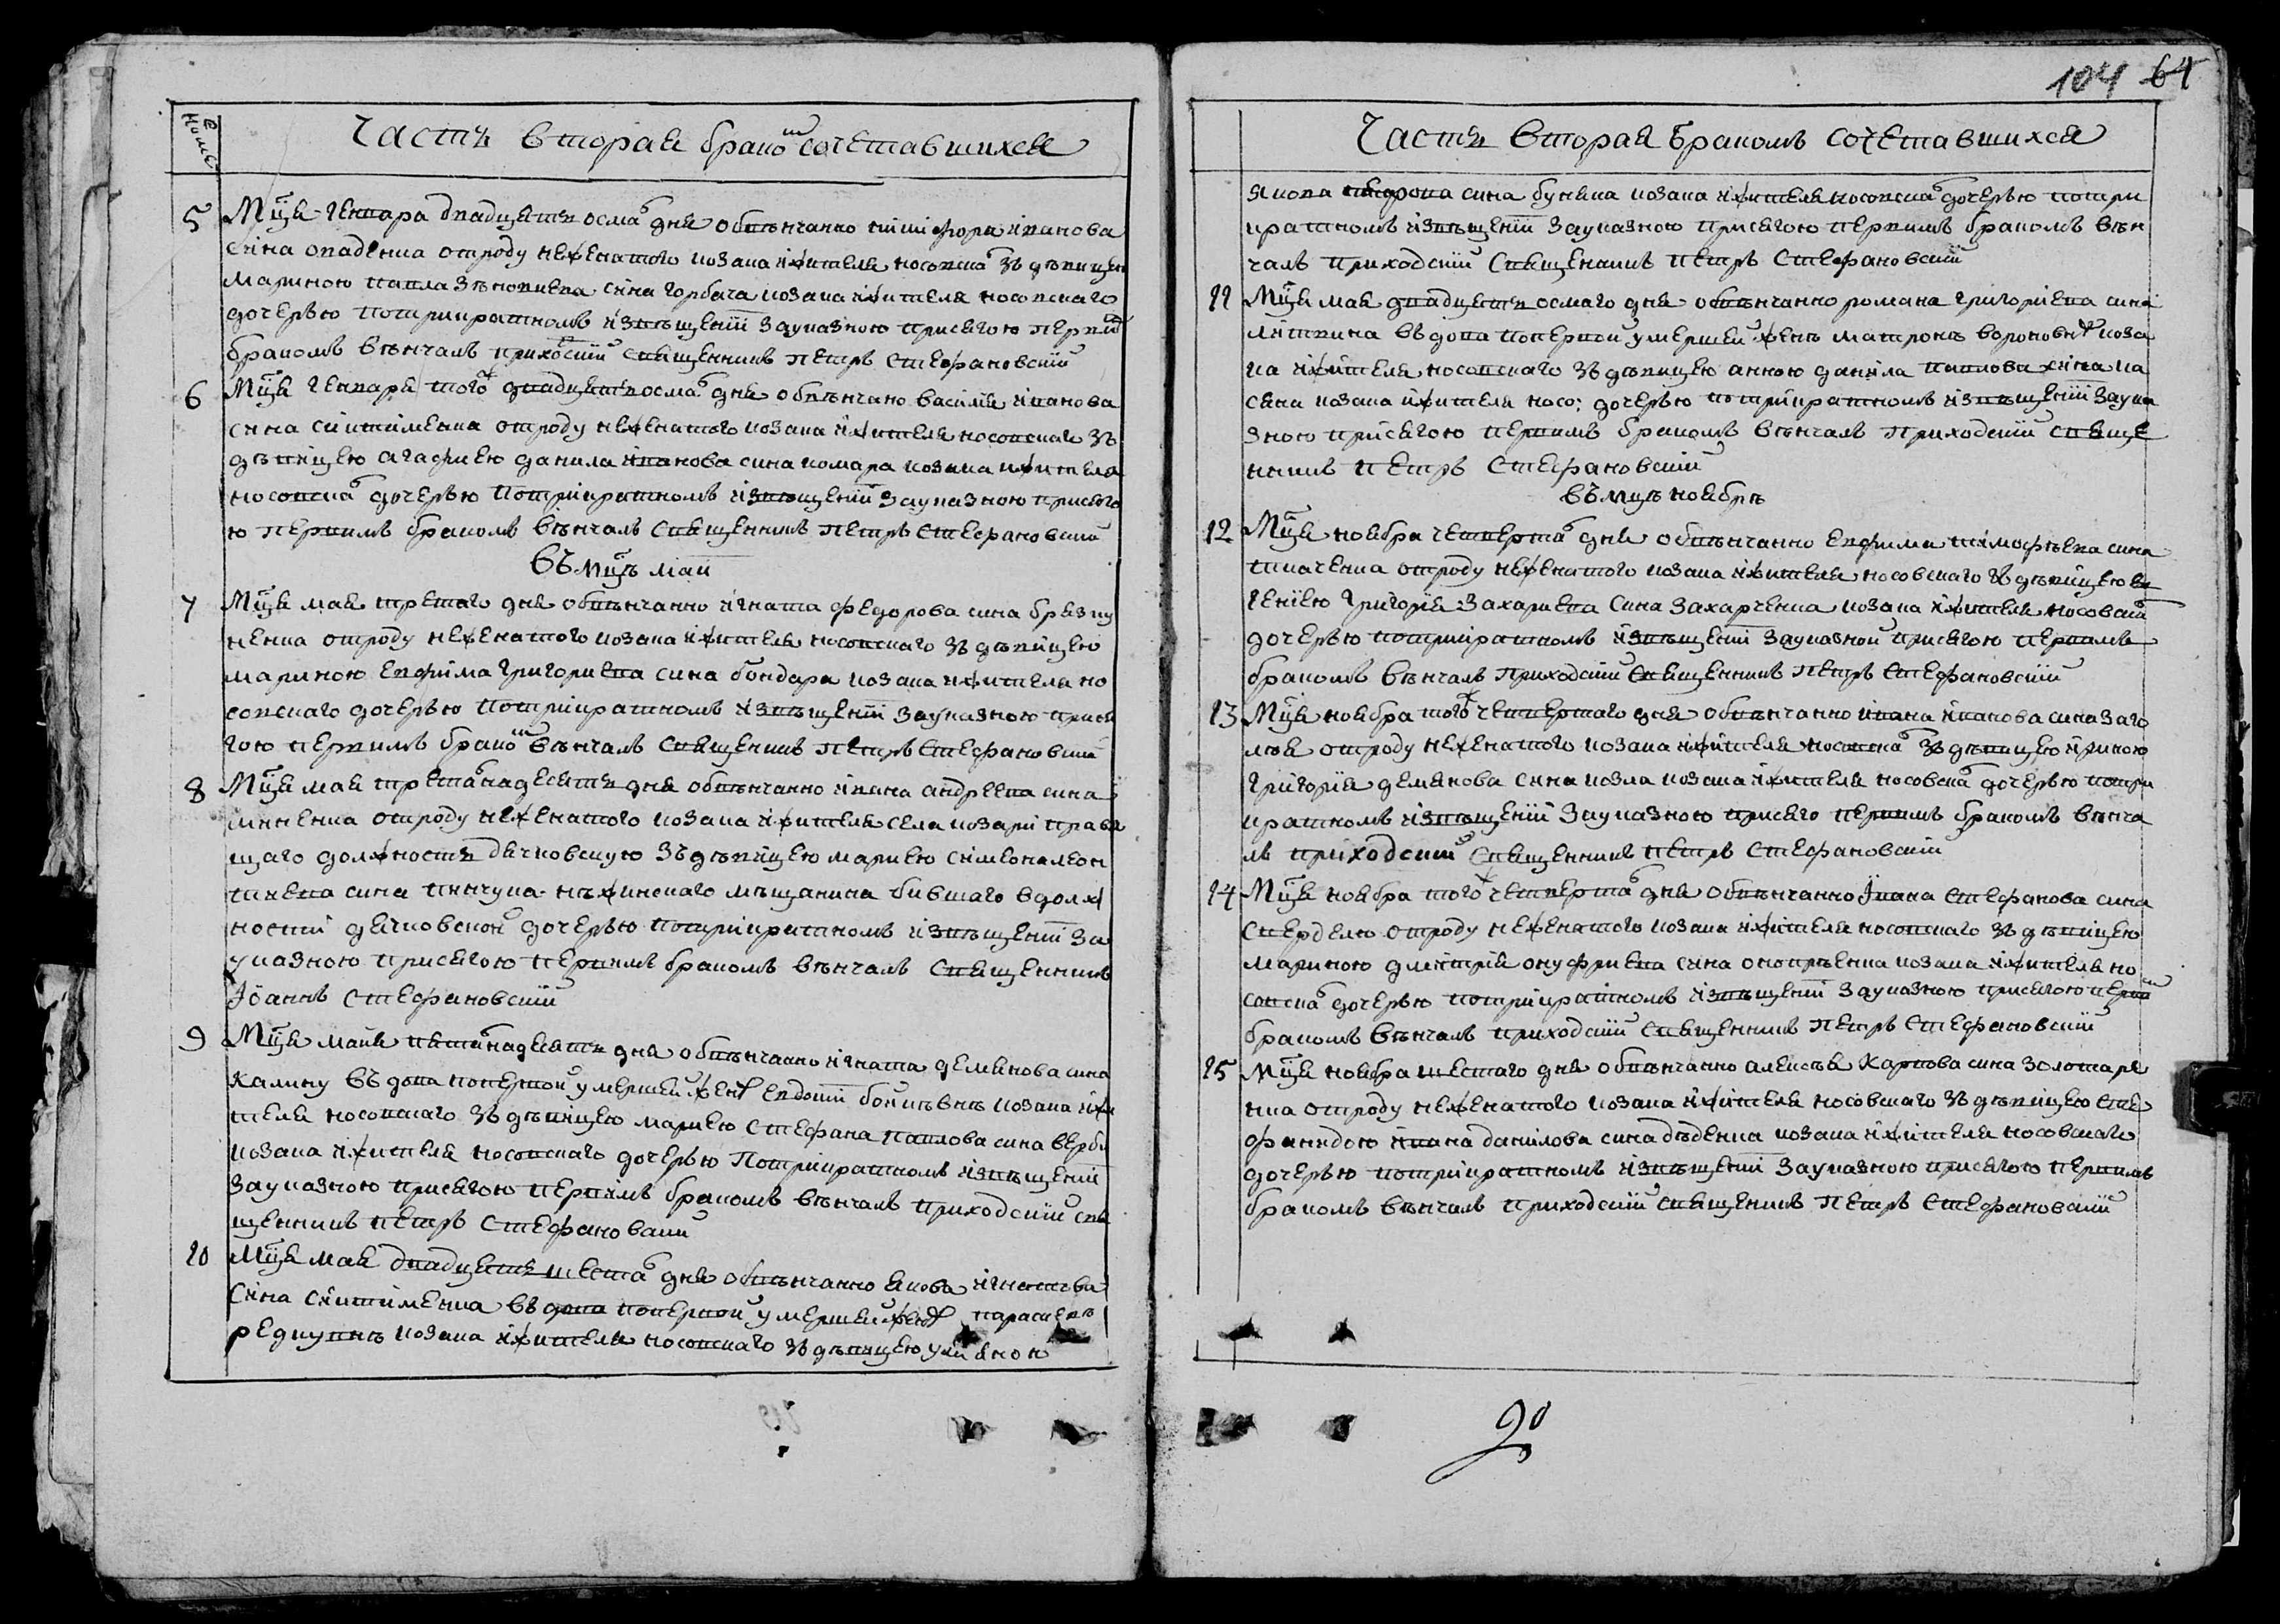 Номе
Часть вторая браком сочетавшихся
5 Мца генвара двадцять осмаго дня обвѣнчанно никифора иванова
сина овадѣнка отроду неженатого козака жителя носовскаго зъ дѣвицею
мариною павла зѣновиева сина горбача козака жителя носовскаго
дочерью потрикратномъ извѣщении зауказною присягою первим
бракомъ вѣнчалъ приходскій священникъ петръ стефановскій
6 Мца генвара того ж двадцять осмаго дня обвѣнчано василия иванова
сина сихтименка отроду неженатого козака жителя носовскаго зъ
дѣвицею агафиею данила иванова сина комара козака жителя
носовскаго дочерью потрикратномъ извѣщении зауказною присяго
ю первимъ бракомъ вѣнчалъ священникъ петръ стефановскій
въ мцѣ маи
7 Мца мая третаго дня обвѣнчанно игната федорова сина брязку
ненка отроду нежената​го козака жителя носовскаго зъ дѣвицею
мариною евфима григориева сина бондара козака жителя но
совскаго дочерью потрикратномъ извѣщении зауказною прися
гою первимъ браком вѣнчалъ священникъ петръ стефановскій
8 Мца мая третаго надесять дня обвѣнчанно ивана андреева сина
отроду нежената​го козака жителя села козари правя
щаго должность дячковскую зъ дѣвицею мариею симеона леон
тиева сина нѣжинскаго мѣщанина бившаго в долж
ности дячковской дочерью потрикратномъ извѣщении за
указною присягою первимъ бракомъ вѣнчалъ священникъ
Іоаннъ стефановскій
9 Мца маия пятаго надесять дня обвѣнчанно игната демянова сина
калину въдова поперво​й умершей женѣ евдокии козака жи
теля носовскаго зъ дѣвицею мариею стефана павлова сина верби
козака жителя носовскаго дочерью потрикратномъ извѣщении
зауказною присягою первимъ бракомъ вѣнчалъ приходскій свя
щенникъ петръ стефановскій
10 Мца мая двадцять шестаго дня обвѣнчанно якова игнатова
сина сихтименка въдова поперво​й умершей женѣ параскевѣ
редкувнѣ козака жителя носовскаго зъ дѣвицею улияною
104 64
Часть вторая браком​ъ сочетавшихся
якова сидорова сина буняка козака жителя носовскаго дочерью потри
кратномъ извѣщении зауказною присягою первимъ бракомъ вѣн
чалъ приходскій священникъ петръ стефановскій
11 Мца мая двадцять осмаго дня обвѣнчанно романа григориева сина
литвина въдова поперво​й умершей женѣ матронѣ вороновнѣ коза
ка жителя носовскаго зъ дѣвицею анною данила павлова сина ка
сяна козака жителя носо: дочерью потрикратномъ извѣщении заука
зною присягою первимъ бракомъ вѣнчалъ приходскій священ
никъ петръ стефановскій
въ мцѣ ноябрѣ
12 Мца ноября четвертаго дня обвѣнчанно евфима тимофѣева сина
ткаченка отроду нежената​го козака жителя носовскаго зъ дѣвицею ев
гениею григория захариева сина захарченка козака жителя носовскаго
дочерью потрикратномъ извѣщении зауказной присягою первимъ
бракомъ вѣнчалъ приходскій священникъ петръ стефановскій
13 Мца ноября того ж четвертаго дня обвѣнчанно ивана иванова сина заго
лья отроду нежената​го козака жителя носовскаго зъ дѣвицею ириною
григория демянова сина козла козака жителя носовскаго дочерью потри
кратномъ извѣщении зауказною присяго первимъ бракомъ вѣнча
лъ приходскій священникъ петръ стефановскій
14 Мца ноября того ж четвертаго дня обвѣнчанно ивана стефанова сина
свердлю отроду нежената​го козака жителя носовскаго зъ дѣвицею
мариною дмитрия онуфриева сина оноприенка козака жителя но
совскаго дочерью потрикратномъ извѣщении зауказною присягою первим
бракомъ вѣнчалъ приходскій священникъ петръ стефановскій
15 Мца ноября шестаго дня обвѣнчанно алексѣя карпова сина золотаре
нка отроду нежената​го козака жителя носовскаго зъ дѣвицею сте
фанидою ивана данилова сина дѣденка козака жителя носовскаго
дочерью потрикратномъ извѣщении зауказною присягою первимъ
бракомъ вѣнчалъ приходскій священникъ петръ стефановскій
90